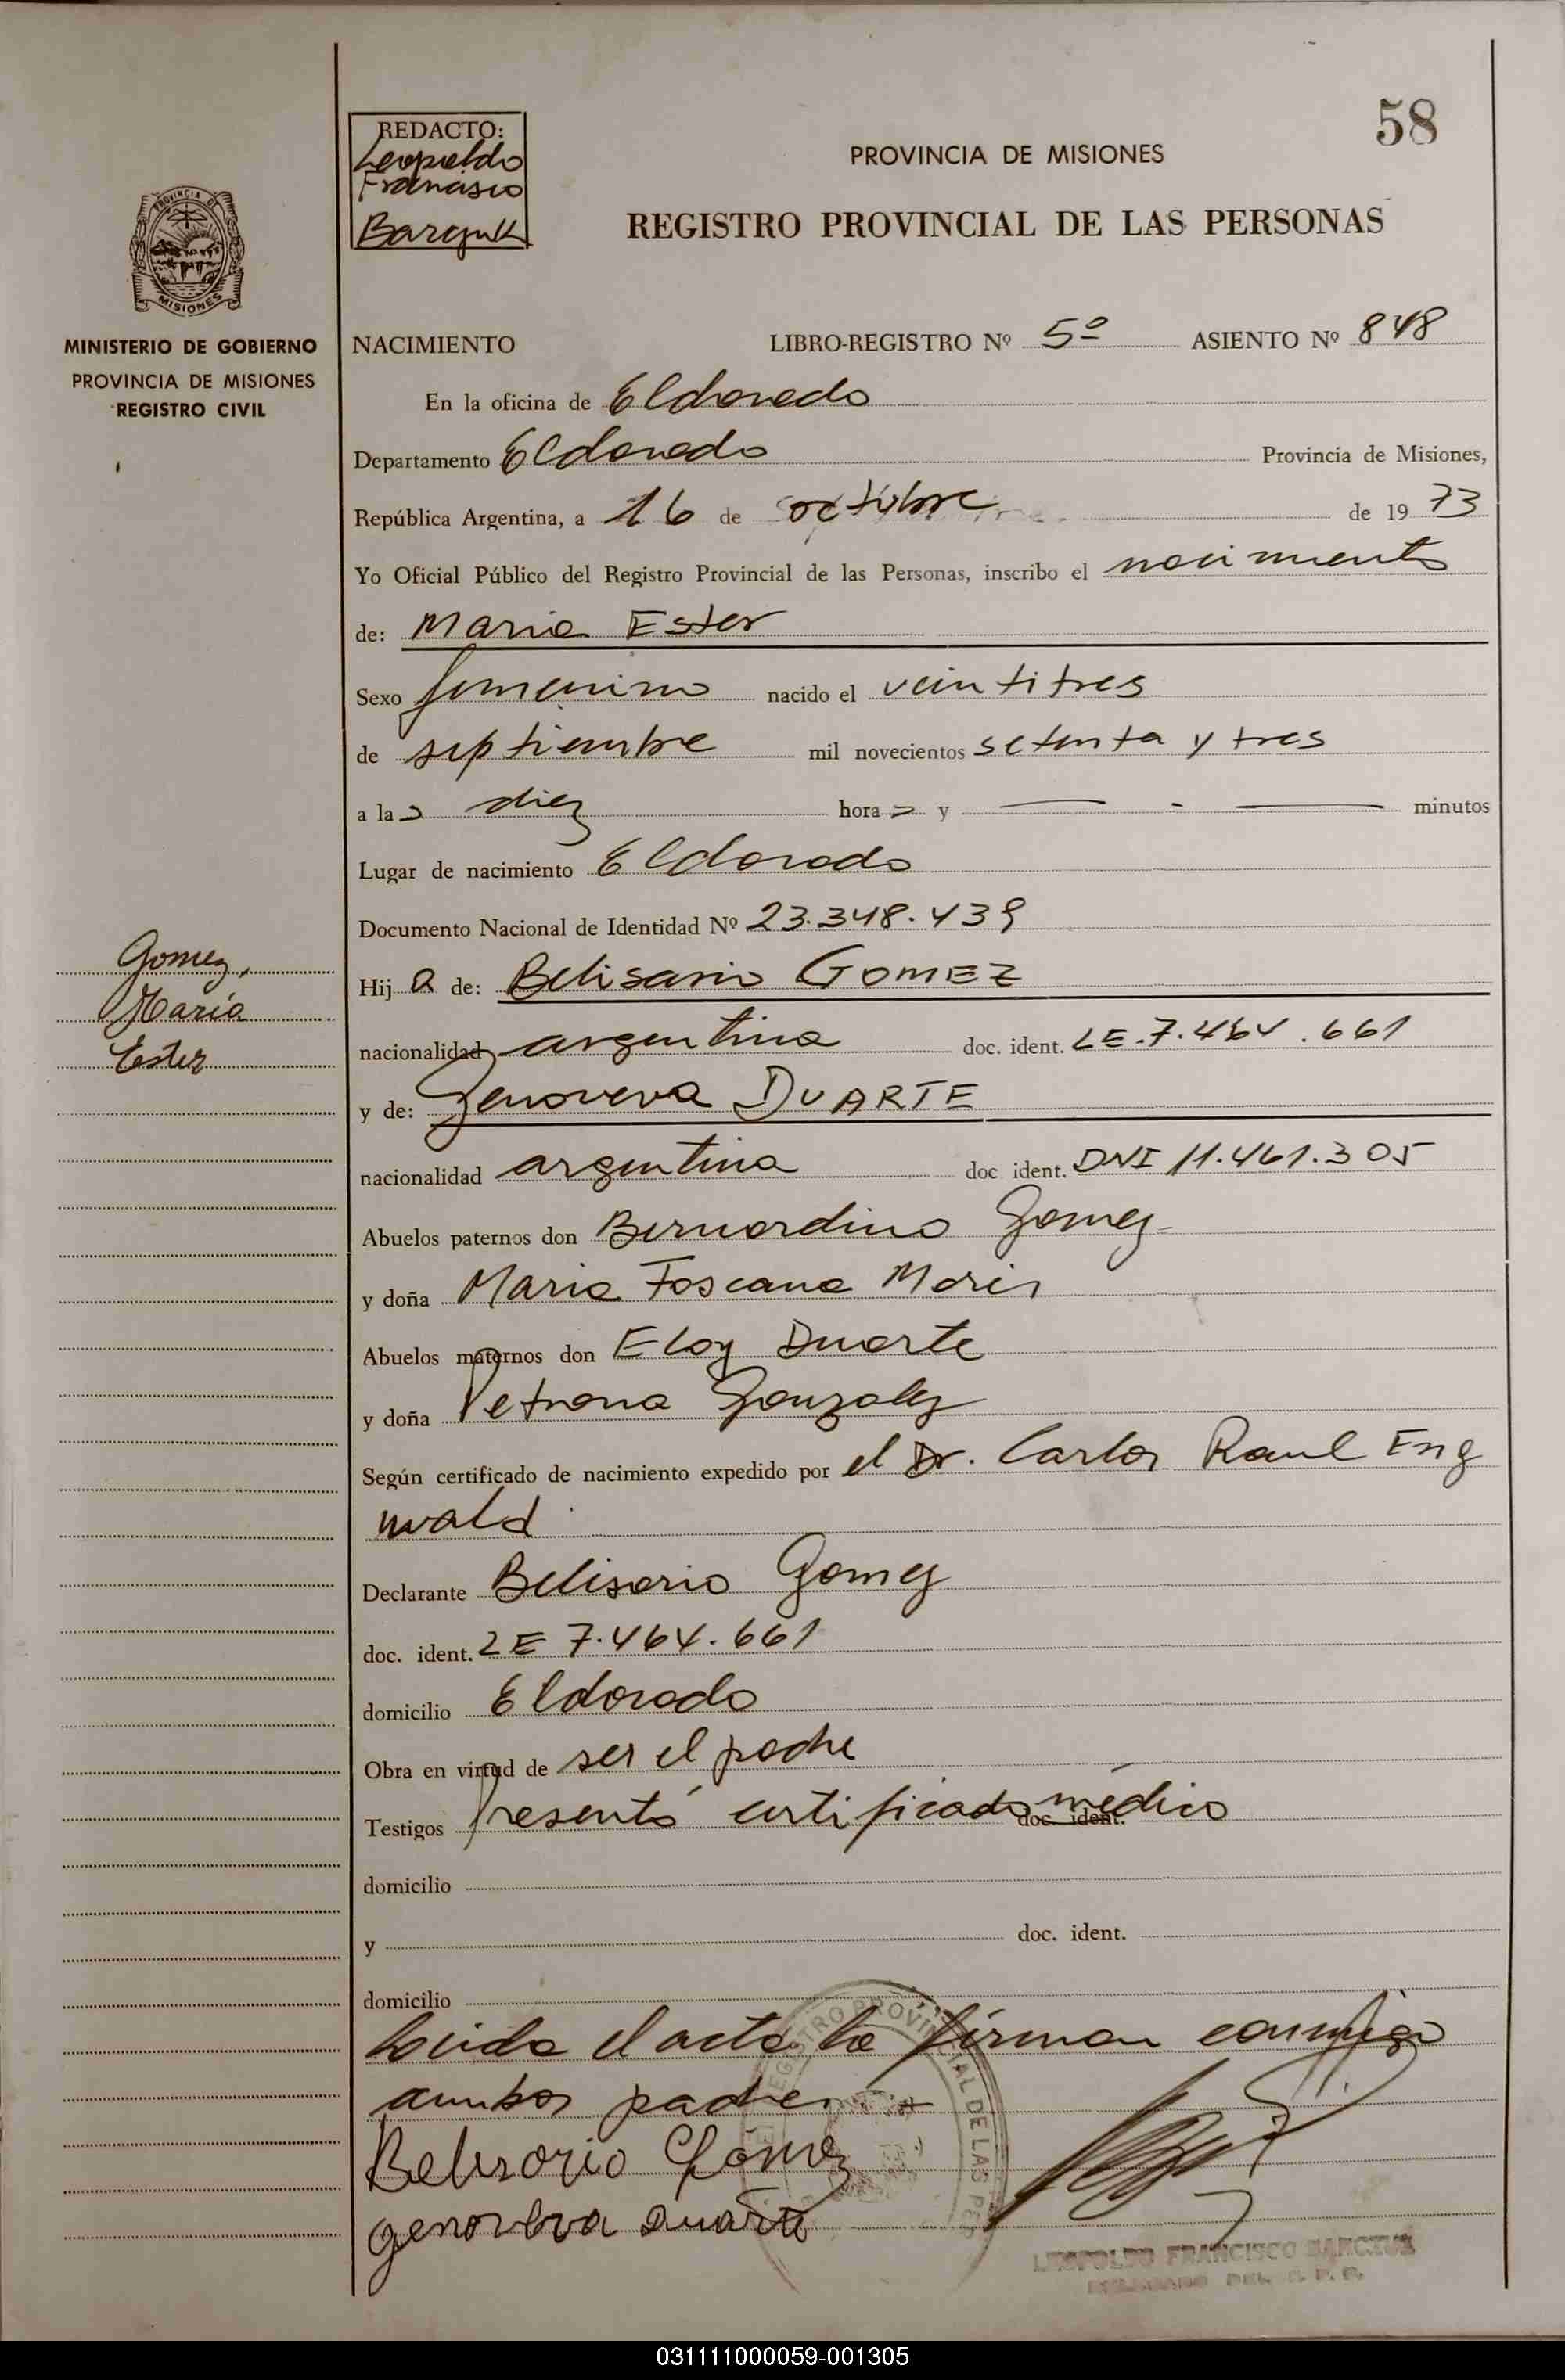 58
REDACTO:
Leopoldo
Francisco
PROVINCIA DE MISIONES
REGISTRO PROVINCIAL DE LAS PERSONAS
PROVINCIA DE
MISIONES
MINISTERIO DE GOBIERNO
PROVINCIA DE MISIONES
REGISTRO CIVIL
NACIMIENTO LIBRO-REGISTRO Nº 5º ASIENTO Nº 848
En la oficina de Eldorado
Departamento Eldorado Provincia de Misiones,
República Argentina, a 16 de octubre de 19 73
Yo Oficial Público del Registro Provincial de las Personas, inscribo el nacimiento
de: Maria Ester
Sexo femenino nacido el veintitres
de septiembre mil novecientos setenta y tres
a la s diez hora s y — - — minutos
Lugar de nacimiento Eldorado
Documento Nacional de Identidad Nº 23.348.439
Gomez,
María
Ester
Hij a de: Belisario GOMEZ
nacionalidad argentina doc. ident. LE.7.464.661
y de: Genoveva DUARTE
nacionalidad argentina doc ident. DNI 11.461.305
Abuelos paternos don Bernardino Gomez
y doña Maria Toscana
Abuelos maternos don Eloy Duarte
y doña Petrona Gonzalez
Según certificado de nacimiento expedido por el Dr. Carlos Raul Eng
wald
Declarante Belisario Gomez
doc. ident. LE 7.464.661
domicilio Eldorado
Obra en virtud de ser el padre
Testigos Presentó certificado médico doc. ident.
domicilio
y doc. ident.
domicilio
Leída el acta la firman conmigo
ambos padres
Belisario Gómez
genoveva duarte
REGISTRO PROVINCIAL DE LAS PER
LEOPOLDO FRANCISCO
031111000059-001305